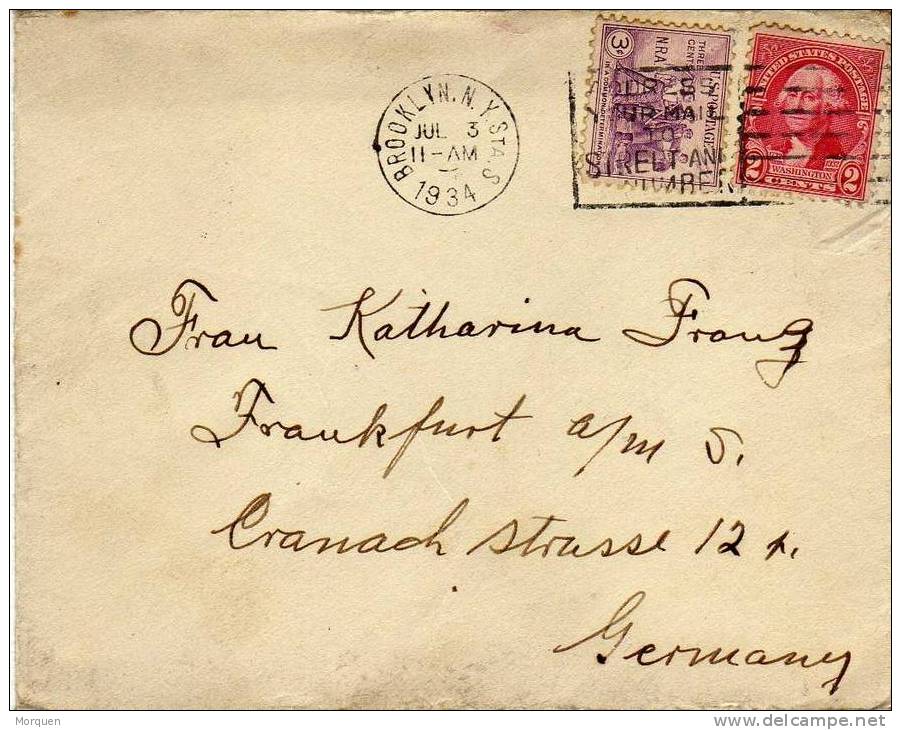 BROOKLYN, N.Y. STA. S
JUL 3
11-AM
1934
3¢
THREE CENTS
NRA
U.S. POSTAGE
IN A COMMON DETERMINATION
UNITED STATES POSTAGE
WASHINGTON
2 CENTS 2
YOUR MAIL
TO
STREET AND
NUMBER
Frau Katharina Franz
Frankfurt a/m S.
Cranach strasse 12
Germany
Morquen
delcampe.net